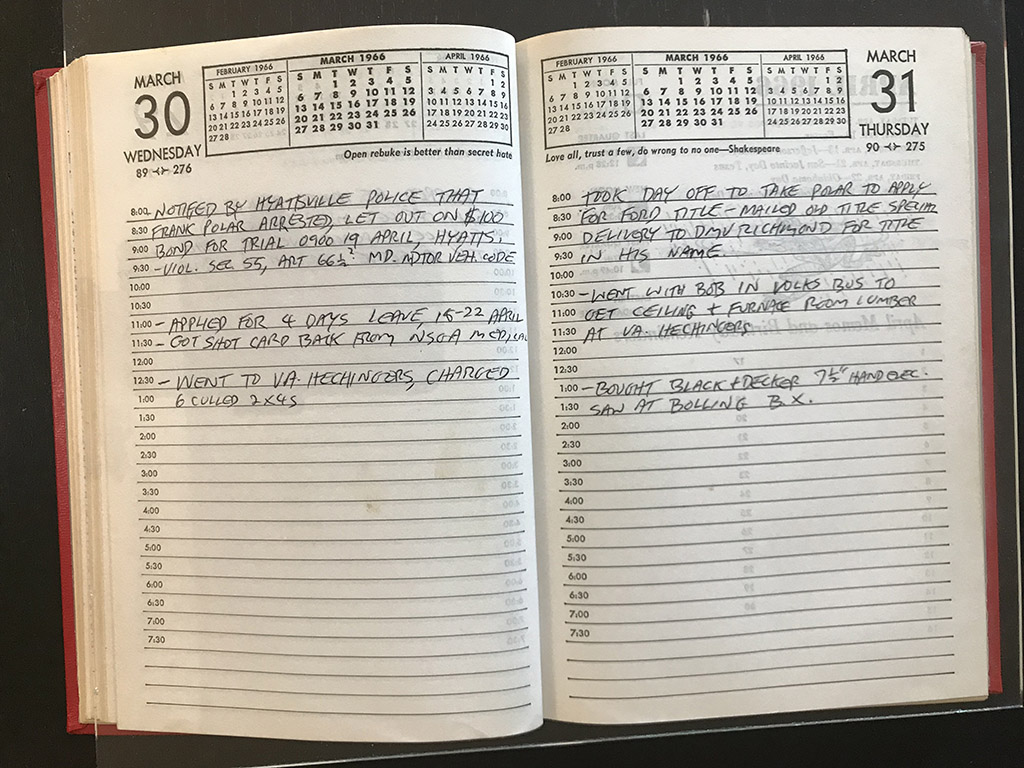 MARCH
30
WEDNESDAY
89 276
FEBRUARY 1966
S M T W T F S
1 2 3 4 5
6 7 8 9 10 11 12
13 14 15 16 17 18 19
20 21 22 23 24 25 26
27 28
MARCH 1966
S M T W T F S
1 2 3 4 5
6 7 8 9 10 11 12
13 14 15 16 17 18 19
20 21 22 23 24 25 26
27 28 29 30 31
APRIL 1966
S M T W T F S
1 2
3 4 5 6 7 8 9
10 11 12 13 14 15 16
17 18 19 20 21 22 23
24 25 26 27 28 29 30
Open rebuke is better than secret hate
8:00 - NOTIFIED BY HYATTSVILLE POLICE THAT
8:30 FRANK POLAR ARRESTED, LET OUT ON $100
9:00 BOND FOR TRIAL 0900 19 APRIL, HYATTS.
9:30 - VIOL. SEC 55, ART 66½. MD. MOTOR VEH. CODE
10:00
10:30
11:00 - APPLIED FOR 4 DAYS LEAVE, 15-22 APRIL
11:30 - GOT SHOT CARD BACK FROM
12:00
12:30 - WENT TO VA. HECHINGERS, CHARGED
1:00 6 CULLED 2X4S
1:30
2:00
2:30
3:00
3:30
4:00
4:30
5:00
5:30
6:00
6:30
7:00
7:30
FEBRUARY 1966
S M T W T F S
1 2 3 4 5
6 7 8 9 10 11 12
13 14 15 16 17 18 19
20 21 22 23 24 25 26
27 28
MARCH 1966
S M T W T F S
1 2 3 4 5
6 7 8 9 10 11 12
13 14 15 16 17 18 19
20 21 22 23 24 25 26
27 28 29 30 31
APRIL 1966
S M T W T F S
1 2
3 4 5 6 7 8 9
10 11 12 13 14 15 16
17 18 19 20 21 22 23
24 25 26 27 28 29 30
MARCH
31
THURSDAY
90 275
Love all, trust a few, do wrong to no one—Shakespeare
8:00 - TOOK DAY OFF TO TAKE POLAR TO APPLY
8:30 FOR FORD TITLE - MAILED OLD TITLE SPECIAL
9:00 DELIVERY TO DMV RICHMOND FOR TITLE
9:30 IN HIS NAME.
10:00
10:30 - WENT WITH BOB IN VOLKS BUS TO
11:00 GET CEILING + FURNACE ROOM LUMBER
11:30 AT VA. HECHINGERS
12:00
12:30
1:00 - BOUGHT BLACK + DECKER 7½" HAND ELEC.
1:30 SAW AT BOLLING B.X.
2:00
2:30
3:00
3:30
4:00
4:30
5:00
5:30
6:00
6:30
7:00
7:30